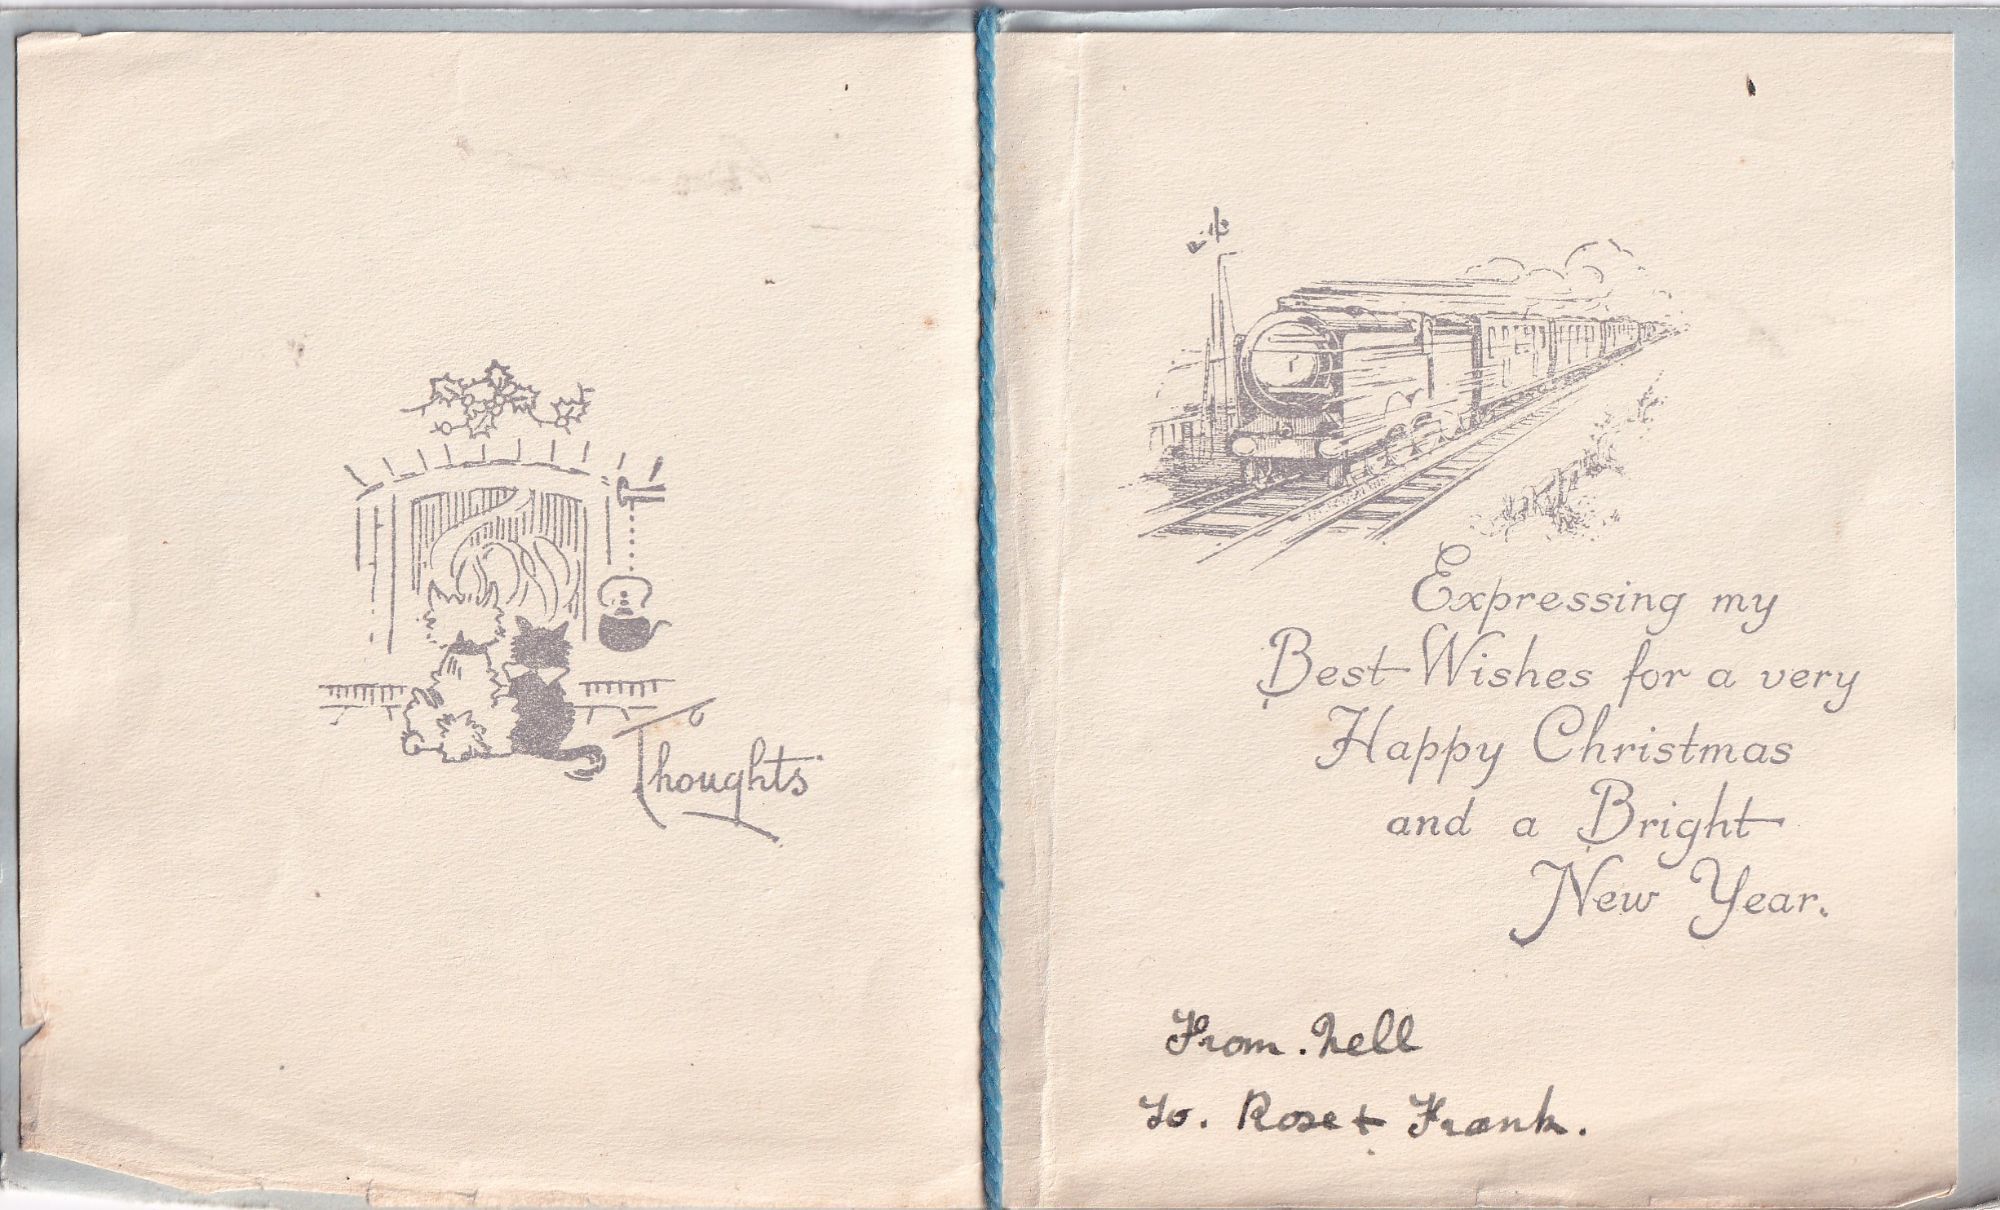 Thoughts
Expressing my
Best Wishes for a very
Happy Christmas
and a Bright
New Year.
From. Nell
To. Rose + Frank.